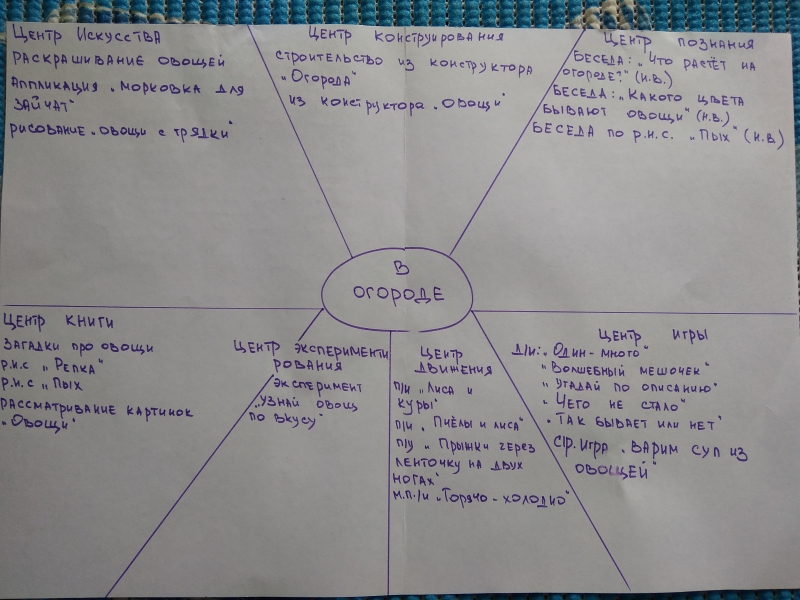 Центр Искусства
раскрашивание овощей
Аппликация „Морковка для
зайчат"
рисование „овощи с грядки"
Центр конструирования
строительство из конструктора
„Огорода"
из конструктора „Овощи"
Центр познания
Беседа: „Что растёт на
огороде?" (н.в.)
Беседа: „Какого цвета
бывают овощи" (н.в.)
Беседа по р.н.с. „Пых" (н.в.)
В
огороде
Центр книги
Загадки про овощи
р.н.с „Репка"
р.н.с „Пых
Рассматривание картинок
„Овощи"
Центр эксперименти
рования
эксперимент
„Узнай овощ
по вкусу"
Центр
движения
п/и „Лиса и
куры"
п/и „Пчёлы и лиса"
п/у „Прыжки через
ленточку на двух
ногах"
м.п./и „Горячо-холодно"
Центр игры
Д/и: „Один-много"
„Волшебный мешочек"
„Угадай по описанию"
„Чего не стало"
„Так бывает или нет"
С/р. игра „Варим суп из
овощей"